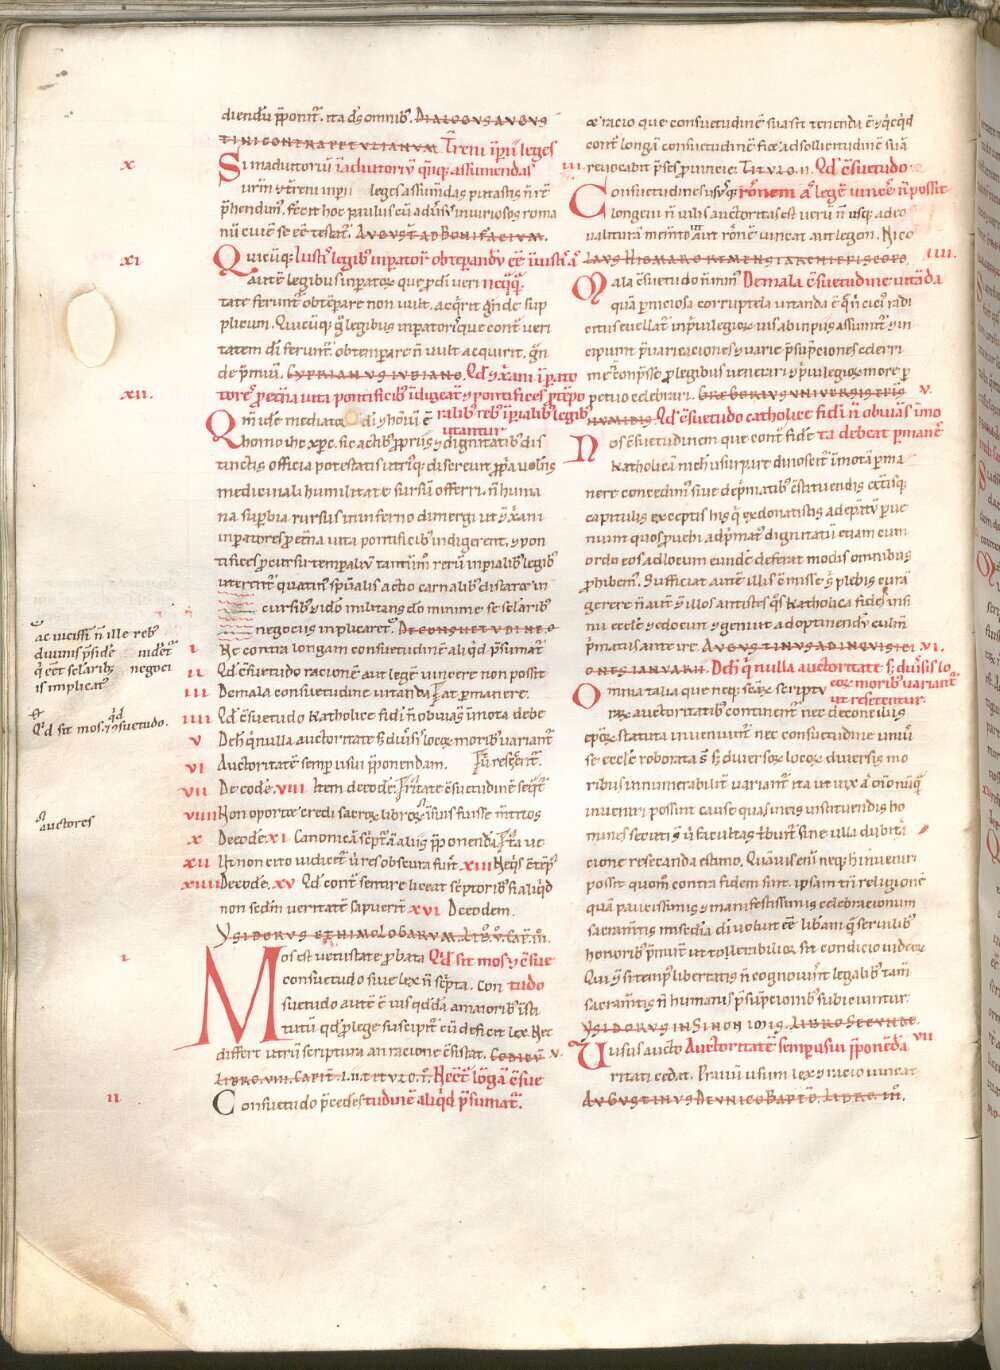 diendū p̄ponit᷒. ita d̄s omnib᷒. DIALOGVS AVGVS
TINI CONTRA PETVLIANVM Tren̄ īp̄ii leges
x
S in adiutoriū ī adiutoriū q̄nq; assumendas
leges assum̄das putastis n̄ rē
p̄hendim᷒. fecit hoc paulus cū aduers᷒ iniuriosos roma
nū ciuē se eē testat᷒. AVGVST AD BONIFACIVM.
xi
Q uicūq; legib᷒ inpator᷒ obtepandū eē
autē legibus inpatoꝝ que p di ueri neq̄q̄
tate ferunt᷒ obtēpare non uult. acq̄rit g̅nde sup
plicium. Quicūq; g̊ legibus inpatoꝝ que cont̄ ueri
tatem di ferunt᷒. obtemparare n̄ uult acquirit. g̅n
de p̄miū. CYPRIANVS IVBIANO. Qd̄ 7 x̄ani īpato
xii.
tores p et̄na uita pontificib᷒ īdigeāt 7 pontifices p tēpo
ralib᷒ reb᷒ īpialib᷒ legib᷒
utantur
Q m̄ idē mediator di 7 hōinū ē
homo ihc xp̄c. sic actib᷒ ppriis 7 dignitatib᷒ dis
tinctis officia potestatis utriq; discreuit ppa uolēs
medicinali humilitate sursū offerri. n̄ huma
na supbia rursus in inferno dimergi ut 7 x̄ani
inpatores p et̄na uita pontificib᷒ indigerent. 7 pon
tifices p cursu temporaliū tantūm̄ rerū inpialib᷒ legib᷒
uterent᷒ quatin᷒ sp̄ualis actio carnalib᷒ distaret in
cursib᷒ 7 ido militans do minime se sclarib᷒
negociis inplicaret᷒. DE CONSVETVDINE.
ac uicissī n̄ ille reb᷒
diuinis p̄sidē uidet᷒
q̄ eēt sclarib᷒ negoci
is implicat᷒
i Ne contra longam consuetudinē aliq̄d p̄sumat᷒
ii Qd̄ c̄suetudo racionē aut legē uincere non possit
iii De mala consuetudine uitanda
iiii Qd̄ c̄suetudo katholice fidei n̄ obuiās īmota debe at pmanere.
Qd̄ sit mos 7 qd̄ c̄suetudo.
v De h̄ q̄ nulla auctoritate s; diuis᷒ locoꝝ morib᷒ uariant᷒
vi Auctoritatē semp usui p̄ponendam. ū resecent᷒.
vii De eodē. viii Item de eodē.
viiii Non oportere credi sacroꝝ libroꝝ
auctores
x De eodē. xi Canonicā sc̄pturā aliis p̄ponendā
xii Ut non cito iudicent᷒ ū res obscura fuit xiii
xiiii De eodē. xv Qd̄ cont̄ sentire liceat sc̄ptorib᷒ si aliq̄d
non sedm̄ ueritatē sapuerit xvi De eodem.
YSIDORVS ETHIMOLOGARVM. LIB᷒. V. CAP. III.
i
M os est uetustate pbata Qd̄ sit mos 7 c̄sue
consuetudo siue lex n̄ sc̄pta. Con tudo
suetudo autē ē ius qd̄dā a maiorib᷒ īsti
tutū qd̄ p lege suscipit᷒ cū deficit lex. Nec
differt utrū scriptura an racione c̄sistat. CODICV v.
LIBRO. VIII. CAPIT. LII. TITVLO. I. Ne c̄t lōgā c̄sue
ii
C onsuetudo p̄cedēs tudinē aliq̄d p̄sumat᷒.
et racio que consuetudinē suasit tenenda ē 7 ꝗcqd
cont̄ longā consuetudinē fit ad sollicitudinē suā
reuocabit p̄ses prouincie. TITVLO. II. Qd̄ c̄suetudo
iii
C onsuetudinis ususq; rōnem aut legē uincē n̄ possit
longeui n̄ uilis auctoritas est uerū n̄ usq; adeo
ualitura mento ut aut rōnē uincat aut legem. NICO
LAVS HICMARO REMENSI ARCHIEPISCOPO. iiii.
M ala c̄suetudo n̄ min᷒ De mala c̄suetudine uitāda
quā pniciosa corruptela uitanda ē q̄ n̄ cici᷒ radi
citus euellat᷒ in priuilegioꝝ ius ab inpiis assumit᷒ 7 in
cipiunt p̄uaricaciones 7 uarie p̄supciones celerri
me n̄ conpsse p legibus uenerari 7 priuilegioꝝ more p
petuo celebrari. GREGORIVS VNIVERSIS EPIS v.
NVMIDIE Qd̄ c̄suetudo catholice fidei n̄ obuiās īmo
N os c̄suetudinem que cont̄ fidē ta debeat pmanē
katholicā nich᷒ usurpare dinoscit᷒ īmotā pma
nere concedim᷒ siue de p̄matib᷒ c̄stituendis cetisq;
capitulis exceptis his q̄ ex donatistis ad epatū pue
niunt quos puehi ad p̄mat᷒ dignitatū etiam cum
ordo eos ad locum eundē deferat modis omnibus
phibem᷒. Sufficiat autē illis c̄misse s᷒ plebis curā
gerere n̄ aut̄ 7 illos antistes q̄s katholica fides insi
nu eccl̄e 7 edocuit 7 genuit ad optinendū culm̄
p̄matus ante ire. AVGVSTINVS AD INQVISICI vi.
ONES IANVARII. De h̄ q̄ nulla auctoritate s; diuisis lo
O mnia talia que neq; scāꝝ scriptu coꝝ morib᷒ uariant᷒
ut resecentur.
raꝝ auctoritatib᷒ continent᷒ nec deconciliis
ep̄oꝝ statuta inueniunt᷒ nec consuetudine uniū
se eccl̄e roborata s̄ s; diuersoꝝ locoꝝ diuersis mo
ribus innumerabilit᷒ uariant᷒ ita ut uix a̅ oīno ūq̄
inueniri possint cause quas in eis instituendis ho
mines secuti s̄ ū facultas t̄buit᷒ sine ulla dubita
cione resecanda estimo. Quāuis enī neq; h̄ inueniri
possit quom̄ contra fidem sint. ipsam tn̄ religionē
quā paucissimis 7 manifestissimis celebracionum
sacram̄tis misc̄dia di uoluit eē liberam q̄ seruilib᷒
honorib᷒ p̄mit᷒ ut tollerabilioꝝ sit condicio iudeoꝝ
Qui 7 si temp᷒ libertatis n̄ cognouint legalib᷒ tam̄
sacram̄tis n̄ humanis p̄supcionib᷒ subiciuntur.
YSIDORVS IN SINONIMIS. LIBRO SECVNDO.
vii
U sus aucto Auctoritatē semp usui p̄ponēda
ritati cedat. Prauū usum lex 7 racio uincat
AVGVSTINVS DE VNICO BAPTO. LIBRO III.